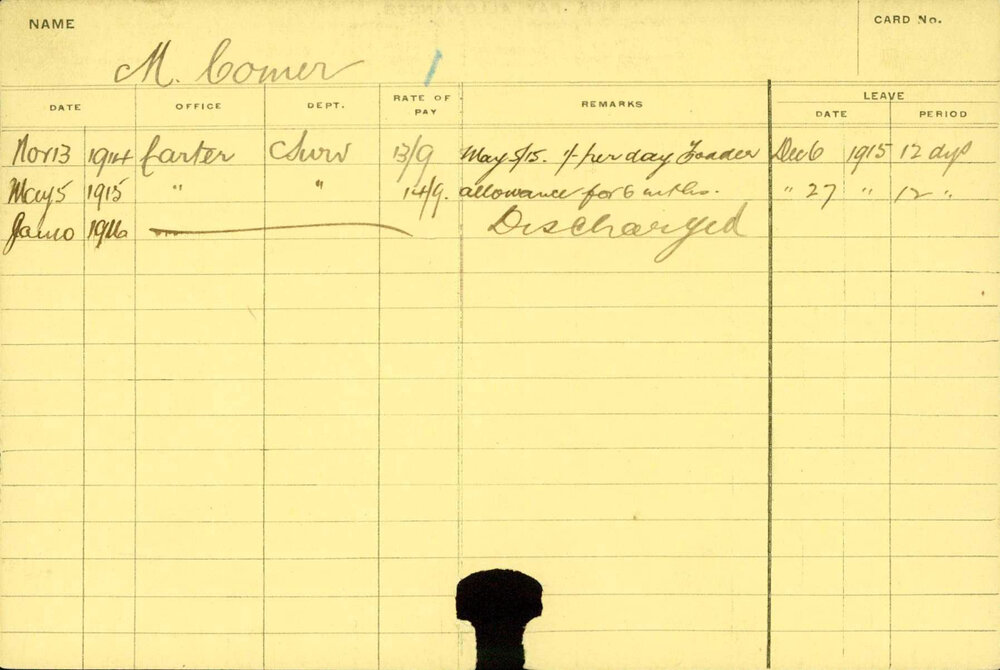 NAME
CARD No.
M. Comer
DATE OFFICE DEPT. RATE OF PAY REMARKS LEAVE
DATE PERIOD
Nov 13 1914 Carter 13/9 May 5/15. 1/- per day Fodder Dec 6 1915 12 dys
May 5 1915 " " 14/9. allowance for 6 mths. " 27 " 12 "
Jan 10 1916 Discharged